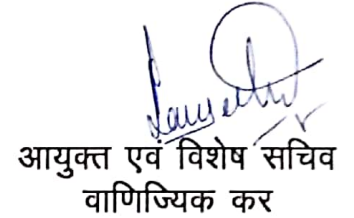 आयुक्त एवं विशेष सचिव
वाणिज्यिक कर